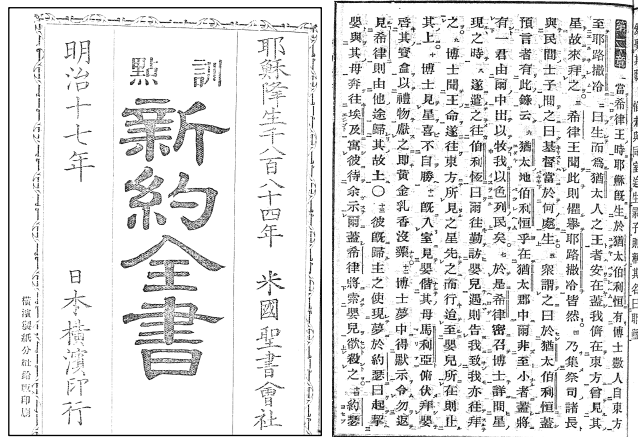 耶穌降生千八百八十四年 米國聖書會社
訓點
新約全書
明治十七年 日本橫濱印行
橫濱製紙分社
當希律王時耶穌既生於猶太伯利恆有博士數人自東方
至耶路撒冷 曰生而爲猶太人之王者安在蓋我儕在東方曾見其
星故來拜之 希律王聞此則懼舉耶路撒冷皆然 乃集祭司諸長
與民間士子問之曰基督當於何處生 衆謂之曰於猶太伯利恆蓋
預言者有此錄云 猶太地伯利恆乎在猶太郡中爾非至小者蓋將
有 君由爾中出以牧我以色列民矣 於是希律密召博士詳問星
現之時 遂遣之往伯利恆曰爾往勤訪嬰兒遇則吿我致我亦往拜
之 博士聞王命遂往東方所見之星先之而行迨至嬰兒所在則止
其上 博士見星喜不自勝 既入室見嬰偕其母馬利亞俯伏拜嬰
啓其寶盒以禮物獻之卽黃金乳香沒藥 博士夢中得默示令勿返
見希律則由他途歸其故土〇 彼既歸主之使現夢於約瑟曰起挈
嬰與其母奔往埃及寓彼待余示爾蓋希律將索嬰兒欲殺之 約瑟